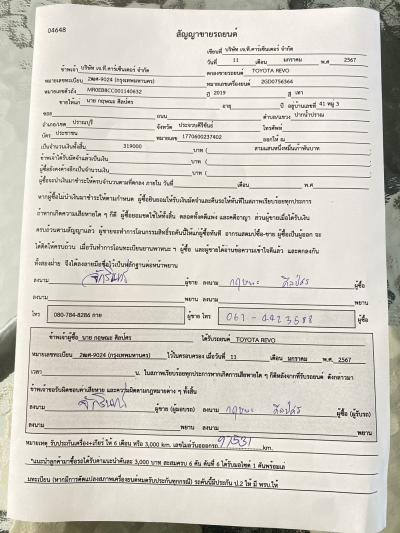 04648
สัญญาขายรถยนต์
เขียนที่ บริษัท เจ.ที.คาร์เซ็นเตอร์ จำกัด
วันที่ 11 เดือน มกราคม พ.ศ 2567
ข้าพเจ้า บริษัท เจ.ที.คาร์เซ็นเตอร์ จำกัด ตกลงขายรถยนต์ TOYOTA REVO
หมายเลขทะเบียน 2ฒศ-9024 (กรุงเทพมหานคร) หมายเลขเครื่องยนต์ 2GD0756364
หมายเลขตัวถัง MR0EB8CC001140632 ปี 2019 สี เทา
ขายให้แก่ นาย กฤษณะ ศิลปัศร อายุ ปี อยู่บ้านเลขที่ 41 หมู่ 3
ซอย ถนน ตำบล/แขวง ปากน้ำปราณ
อำเภอ/เขต ปราณบุรี จังหวัด ประจวบคีรีขันธ์ โทรศัพท์
บัตร ประชาชน หมายเลข 1770600237402 ออกให้ ณ
เป็นจำนวนเงินทั้งสิ้น 319000 บาท ( สามแสนหนึ่งหมื่นเก้าพันบาท
ข้าพเจ้าได้รับมัดจำแล้วเป็นเงิน บาท (
ผู้ซื้อยังคงค้างอีกเป็นจำนวนเงิน บาท (
ผู้ซื้อจะนำเงินมาชำระให้ครบจำนวนตามที่ตกลง ภายใน วันที่ เดือน พ.ศ
หากผู้ซื้อไม่นำเงินมาชำระให้ตามกำหนด ผู้ซื้อยินยอมให้ริบเงินมัดจำและคืนรถให้ทันทีในสภาพเรียบร้อยทุกประการ
ถ้าหากเกิดความเสียหายใด ๆ ก็ดี ผู้ซื้อยอมชดใช้ให้ทั้งสิ้น ตลอดทั้งคดีแพ่ง และคดีอาญา ส่วนผู้ขายเมื่อได้รับเงิน
ครบถ้วนตามสัญญาแล้ว ผู้ขายจะทำการโอนกรรมสิทธิ์รถคันนี้ให้แก่ผู้ซื้อทันที จากแสตมป์ซื้อ-ขาย ผู้ซื้อเป็นผู้ออก จะ
ได้คิดให้ครบถ้วน เมื่อวันทำการโอนทะเบียนยานพาหนะ ฯ ผู้ซื้อ และผู้ขายได้อ่านข้อความเข้าใจดีแล้ว และตกลงกัน
ทั้งสองฝ่าย จึงได้ลงลายมือชื่อไว้เป็นหลักฐานต่อหน้าพยาน
ลงนาม ผู้ขาย ลงนาม กฤษณะ ศิลปัศร ผู้ซื้อ
ลงนาม พยาน ลงนาม พยาน
โทร 080-784-8286 กาย ผู้ขาย โทร 061-4423588 ผู้ซื้อ
ข้าพเจ้าผู้ซื้อ นาย กฤษณะ ศิลปัศร ได้รับรถยนต์ TOYOTA REVO
หมายเลขทะเบียน 2ฒศ-9024 (กรุงเทพมหานคร) ไว้ในครอบครอง เมื่อวันที่ 11 เดือน มกราคม พ.ศ. 2567
เวลา น. ในสภาพเรียบร้อยทุกประการหากเกิดการเสียหายใด ๆ ก็ดีหลังจากที่รับรถยนต์ ดังกล่าวมา
ข้าพเจ้าขอรับผิดชอบค่าเสียหาย และความผิดตามกฎหมายต่าง ๆ ทั้งสิ้น
ลงนาม ผู้ขาย (ผู้มอบรถ) ลงนาม กฤษณะ ศิลปัศร ผู้ซื้อ (ผู้รับรถ)
ลงนาม พยาน ลงนาม พยาน
หมายเหตุ รับประกันเครื่อง+เกียร์ ให้ 6 เดือน หรือ 3,000 km. เลขไมล์วันออกรถ 97531 km.
*แนะนำลูกค้ามาซื้อรถได้รับค่าแนะนำคันละ 3,000 บาท สะสมครบ 6 คัน คันที่ 6 ได้รับมอไซค์ 1 คันพร้อมเล
มทะเบียน (หากมีการดัดแปลงสภาพเครื่องยนต์หมดรับประกันทุกกรณี) รถคันนี้มีประกัน ป.2 ให้ มี พรบ.ให้